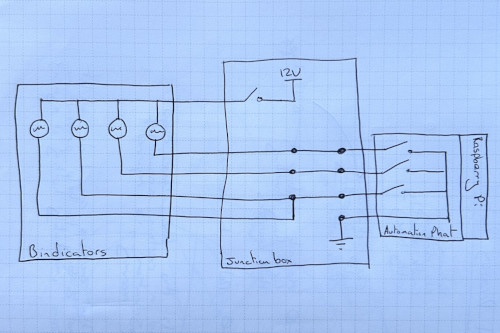 12V
Raspberry Pi
Automation Phat
Bindicators
Junction box